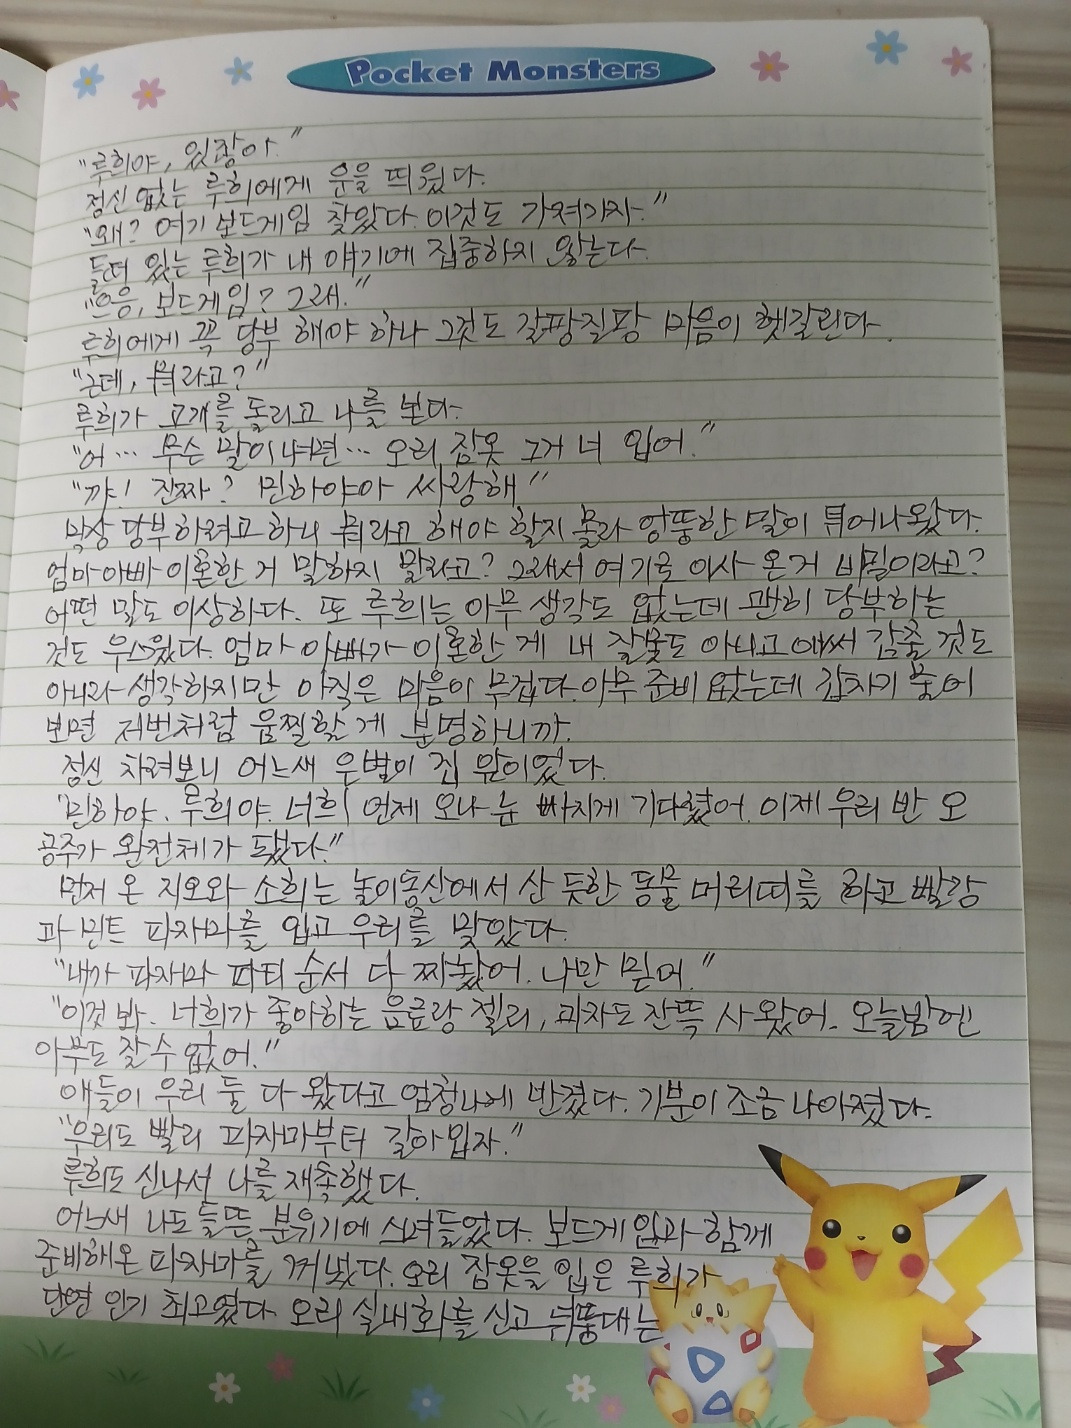 Pocket Monsters
"루희야, 있잖아."
정신 없는 루희에게 운을 띄웠다.
"왜? 여기 보드게임 찾았다. 이것도 가져가자."
들떠 있는 루희가 내 얘기에 집중하지 않는다.
"으응, 보드게임? 그래."
루희에게 꼭 당부 해야 하나 그것도 갈팡질팡 마음이 헷갈린다.
"근데, 뭐라고?"
루희가 고개를 돌리고 나를 본다.
"어… 무슨 말이냐면… 오리 잠옷 그거 너 입어."
"꺄! 진짜? 민하야아 싸랑해"
막상 당부하려고 하니 뭐라고 해야 할지 몰라 엉뚱한 말이 튀어나왔다.
엄마 아빠 이혼한 거 말하지 말라고? 그래서 여기로 이사 온거 비밀이라고?
어떤 말도 이상하다. 또 루희는 아무 생각도 없는데 괜히 당부하는
것도 우스웠다. 엄마 아빠가 이혼한 게 내 잘못도 아니고 애써 감출 것도
아니라 생각하지만 아직은 마음이 무겁다. 아무 준비 없는데 갑자기 물어
보면 저번처럼 움찔할 게 분명하니까.
정신 차려보니 어느새 은별이 집 앞이었다.
"민하야. 루희야. 너희 언제 오나 눈 빠지게 기다렸어. 이제 우리 반 오
공주가 완전체가 됐다."
먼저 온 지오와 소희는 놀이동산에서 산 듯한 동물 머리띠를 하고 빨강
과 민트 파자마를 입고 우리를 맞았다.
"내가 파자마 파티 순서 다 짜놨어. 나만 믿어."
"이것 봐. 너희가 좋아하는 음료랑 젤리, 과자도 잔뜩 사 왔어. 오늘밤엔
아무도 잘 수 없어."
애들이 우리 둘 다 왔다고 엄청나게 반겼다. 기분이 조금 나아졌다.
"우리도 빨리 파자마부터 갈아입자."
루희도 신나서 나를 재촉했다.
어느새 나도 들뜬 분위기에 스며들었다. 보드게임과 함께
준비해온 파자마를 꺼냈다. 오리 잠옷을 입은 루희가
단연 인기 최고였다. 오리 실내화를 신고 뒤뚱대는